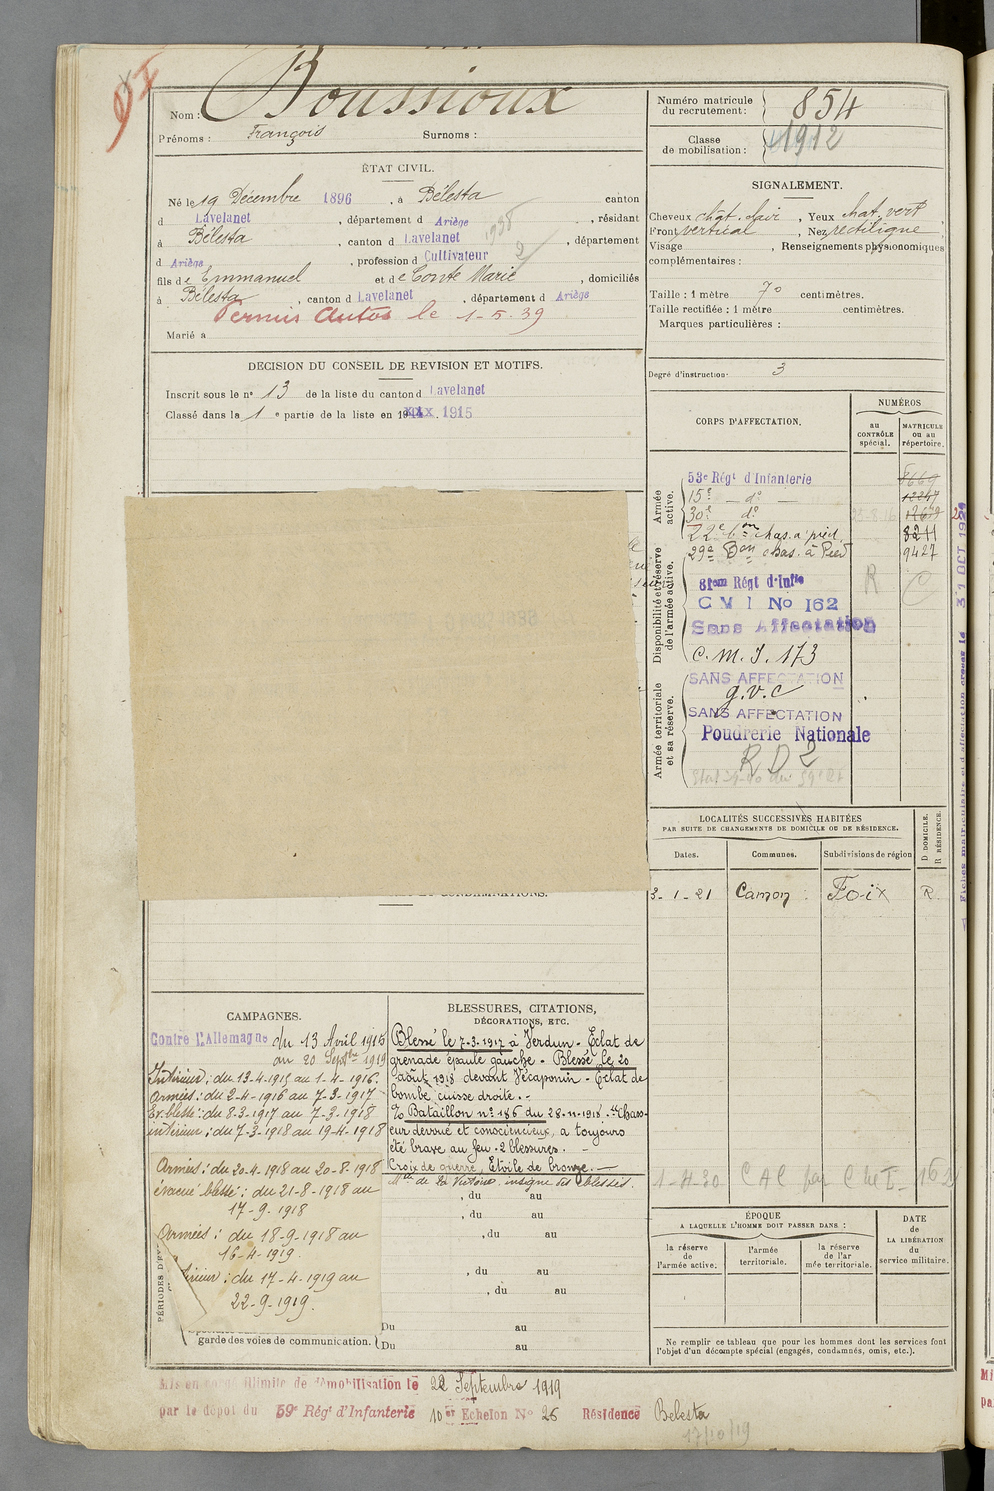 Nom : Boussioux
Prénoms : François Surnoms :
Numéro matricule du recrutement : 854
Classe de mobilisation : 1912
ÉTAT CIVIL.
Né le 19 Décembre 1896, à Bélesta canton
d Lavelanet, département d Ariège, résidant
à Bélesta, canton d Lavelanet, département
d Ariège, profession d Cultivateur
fils de Emmanuel et de Conte Marie, domiciliés
à Bélesta, canton d Lavelanet, département d Ariège
Permis Autos le 1-5-39
Marié à
1938
2
SIGNALEMENT.
Cheveux chat. clair, Yeux chat. vert
Front vertical, Nez rectiligne
Visage , Renseignements physionomiques
complémentaires :
Taille : 1 mètre 70 centimètres.
Taille rectifiée : 1 mètre centimètres.
Marques particulières :
Degré d'instruction. 3
DECISION DU CONSEIL DE REVISION ET MOTIFS.
Inscrit sous le n° 13 de la liste du canton d Lavelanet
Classé dans la 1e partie de la liste en 1915
CORPS D'AFFECTATION.
NUMÉROS
au CONTRÔLE spécial.
MATRICULE ou au répertoire.
Armée active.
53e Régt d'Infanterie
15e — do — 12247
30e do
22e bon chas. à pied. 8211
29e Bon chas. à Pied 9427
Disponibilité et réserve de l'armée active.
81eme Régt d'Infie
R
C M I No 162
Sans Affectation
C. m. I. 173
Armée territoriale et sa réserve.
SANS AFFECTATION
g.v.c
SANS AFFECTATION
Poudrerie Nationale
R D 2
31 OCT 1929
LOCALITÉS SUCCESSIVES HABITÉES
PAR SUITE DE CHANGEMENTS DE DOMICILE OU DE RÉSIDENCE.
Dates. Communes. Subdivisions de région
D DOMICILE.
R RÉSIDENCE.
3-1-21 Camon Foix R.
1-4-30 CAC par C M I 162
CAMPAGNES.
Contre L'Allemagne du 13 Avril 1915
au 20 Septbre 1919
Intérieur : du 13-4-1915 au 1-4-1916.
Armées : du 2-4-1916 au 7-3-1917
Ev. blessé : du 8-3-1917 au 7-3-1918
intérieur : du 7-3-1918 au 19-4-1918
Armées : du 20-4-1918 au 20-8-1918
évacué blessé : du 21-8-1918 au
17-9-1918
Armées : du 18-9-1918 au
16-4-1919.
du 17-4-1919 au
22-9-1919.
garde des voies de communication.
BLESSURES, CITATIONS,
DÉCORATIONS, ETC.
Blessé le 7-3-1917 à Verdun - Éclat de
grenade épaule gauche - Blessé le 20
août 1918 devant Vécaponin - Éclat de
bombe cuisse droite. -
Bataillon n° 186 du 28-11-1918. "Chass-
eur dévoué et consciencieux, a toujours
été brave au feu. 2 blessures. -
Croix de guerre, Étoile de bronze. —
Mlle de La Victoire. insigne des blessés.
, du au
, du au
, du au
, du au
, du au
Du au
Du au
ÉPOQUE
A LAQUELLE L'HOMME DOIT PASSER DANS :
la réserve de l'armée active.
l'armée territoriale.
la réserve de l'ar mée territoriale.
DATE de LA LIBÉRATION du service militaire.
Ne remplir ce tableau que pour les hommes dont les services font
l'objet d'un décompte spécial (engagés, condamnés, omis, etc.).
Mis en congé illimité de démobilisation le 22 Septembre 1919
par le dépot du 59e Régt d'Infanterie 10e Echelon No 26 Résidence Belesta
17/10/19